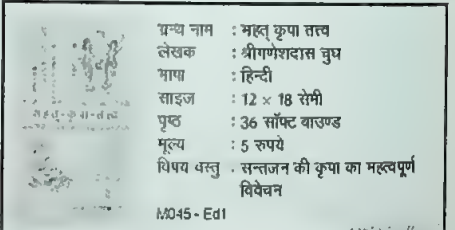 ग्रन्थ नाम : महत् कृपा तत्त्व
लेखक : श्रीगणेशदास चुघ
भाषा : हिन्दी
साइज : 12 × 18 सेमी
पृष्ठ : 36 सॉफ्ट बाउण्ड
मूल्य : 5 रुपये
विषय वस्तु : सन्तजन की कृपा का महत्वपूर्ण
विवेचन
महत्-कृपा-तत्त्व
M045 - Ed1